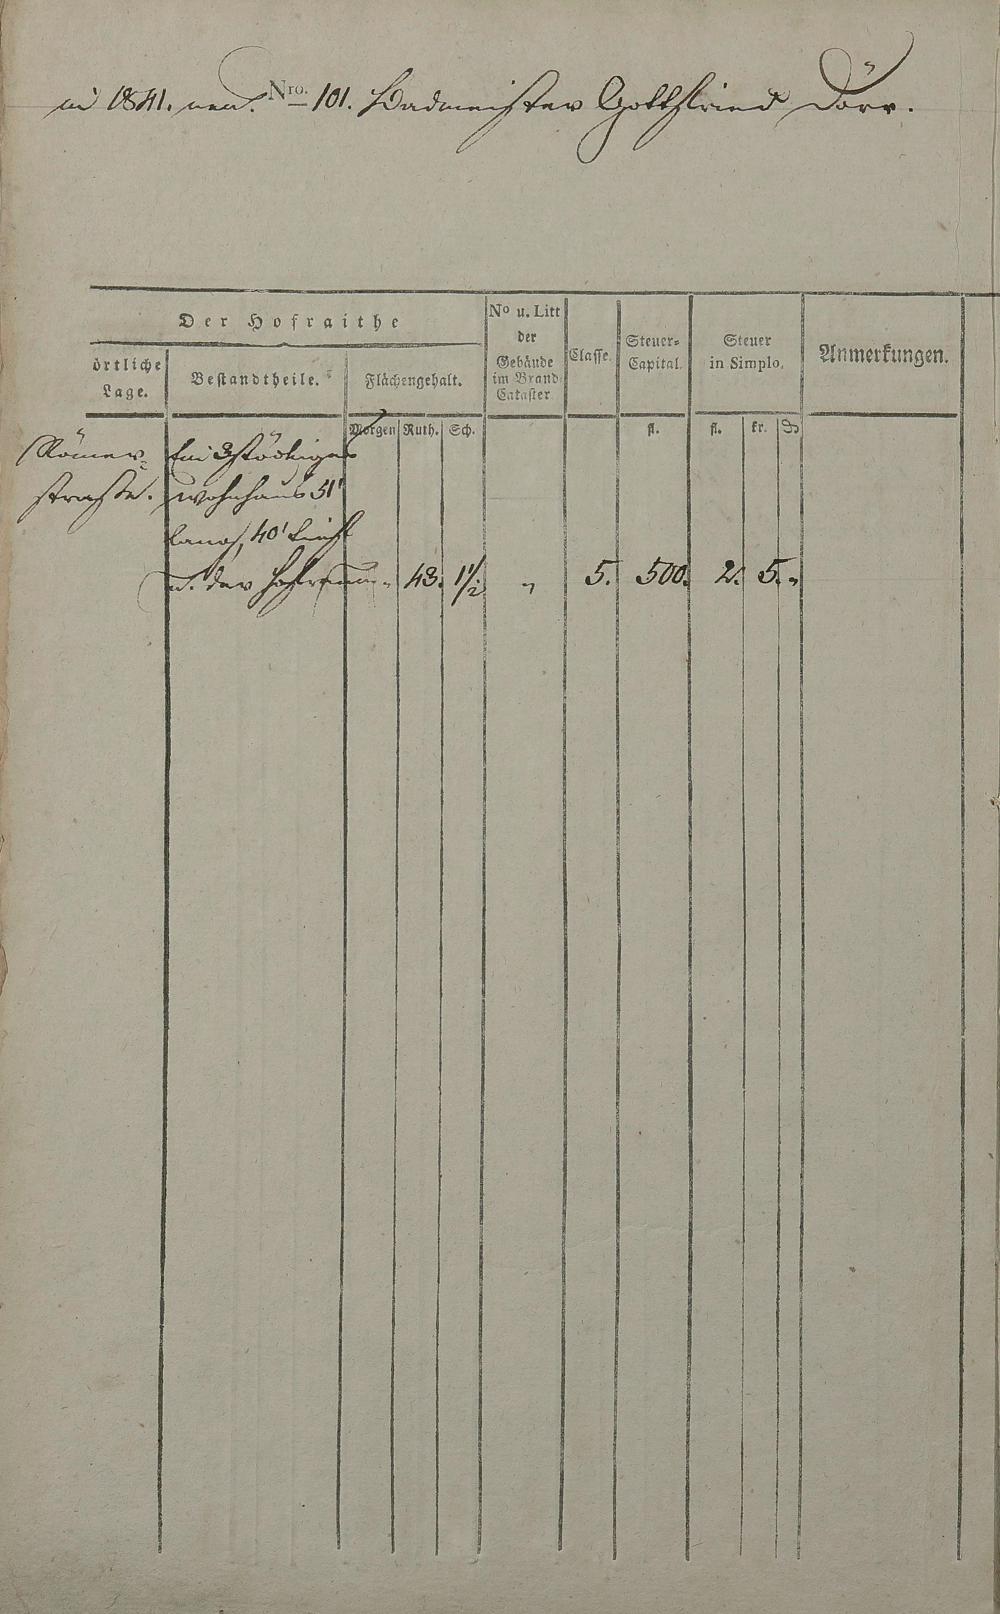 in 1841. neu. Nro. 101. Badmeister Gottfried Dörr.
Der Hofraithe
örtliche Lage.
Bestandtheile.
Flächengehalt.
No u. Litt der Gebäude im Brand Cataster
Classe.
Steuer-Capital.
Steuer in Simplo.
Anmerkungen.
Morgen Ruth. Sch. fl. fl. kr. ₰
Römer- Ein 3stöckiges
strasse. Wohnhaus 51'
lang, 40' tief
u. der Hofraum „ 43. 1½ „ 5. 500. 2. 5. „